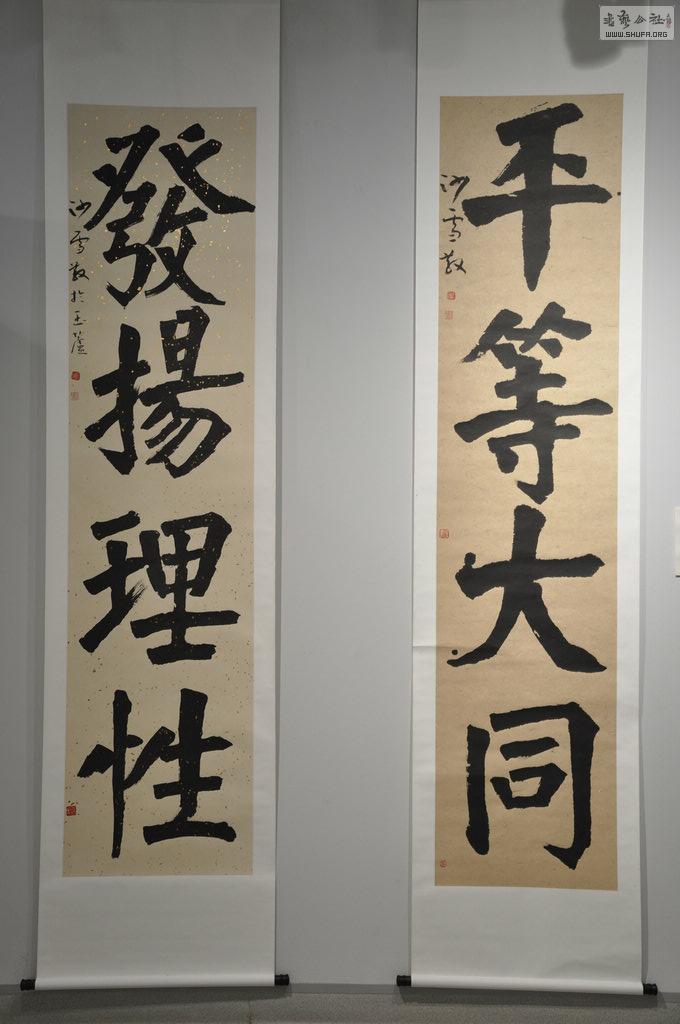 平等大同
沙雪敬
發揚理性
沙雪敬於玉蘆
書藝公社
WWW.SHUFA.ORG